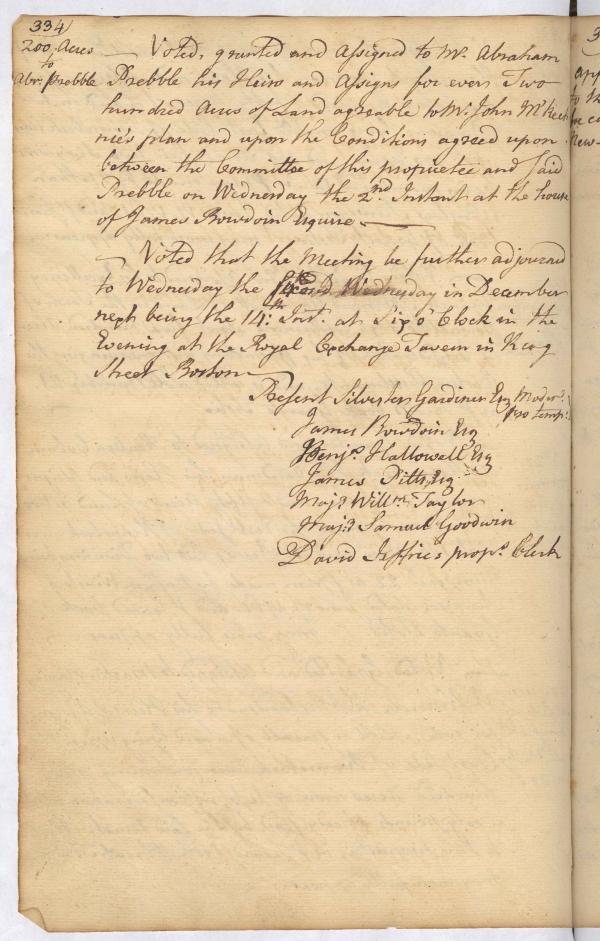 334
200 Acres
to
Abr. Prebble
Voted, granted and assigned to Mr. Abraham
Prebble his Heirs and Assigns for ever Two
hundred Acres of Land agreable to Mr. John McKech
nie's plan and upon the Conditions agreed upon
between the Committee of this proprietee and said
Prebble on Wednesday the 2nd. Instant at the house
of James Bowdoin Esquire
Voted that the Meeting be further adjourned
to Wednesday the second Wednesday in December
next being the 14th. Inst. at Six o'Clock in the
Evening at the Royal Exchange Tavern in King
Street Boston
Present Silvester Gardiner Esq Moderr.
pro temp:
James Bowdoin Esq
Benja. Hallowell Esq
James Pitts, Esq
Majr. Willm. Taylor
Majr. Samuel Goodwin
David Jeffries proprs. Clerk
app
to th
New-